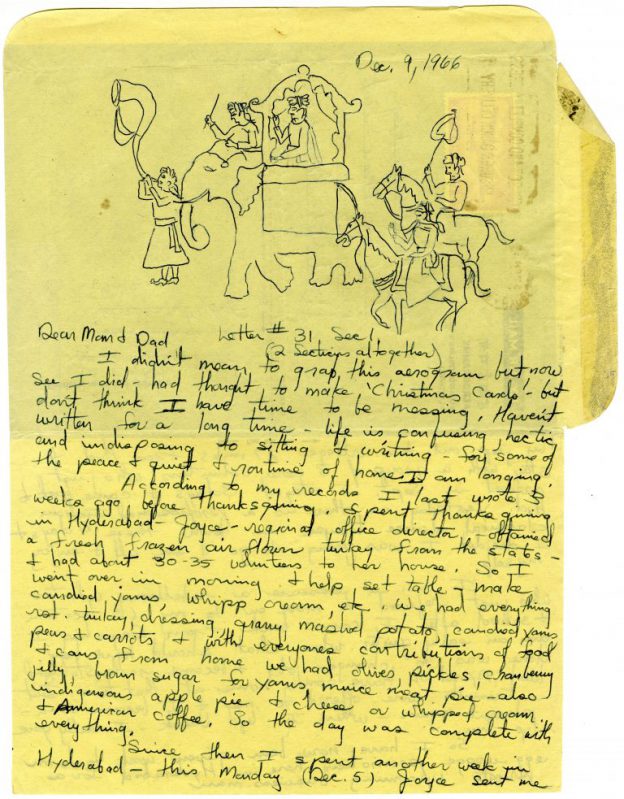 Dec. 9, 1966
Dear Mom & Dad Letter # 31, Sec 1
(2 Sections altogether)
I didn't mean to grap this aerogram but now
see I did - had thought to make 'Christmas Cards' - but
don't think I have time to be messing. Haven't
written for a long time - life is confusing, hectic,
and indisposing to sitting & writing - for some of
the peace & quiet & routime of home I am longing.
According to my records I last wrote 3
weeks ago before Thanksgiving. Spent Thanksgiving
in Hyderabad - Joyce - regional office director, obtained
a fresh frozen air flown turkey from the states -
& had about 30-35 volunteers to her house. So I
went over in morning & help set table - make
candied yams, whipp cream, etc. We had everything
turkey, dressing, gravy, mashed potato, candied yams
peas & carrots & with everyones contributions of food
& cans from home we had olives, pickles, cranberry
jelly, brown sugar for yams, mince meat pie - also
indigenous apple pie & cheese or whipped cream
& American coffee. So the day was complete with
everything.
Since then I spent another week in
Hyderabad - this Monday (Dec. 5) Joyce sent me